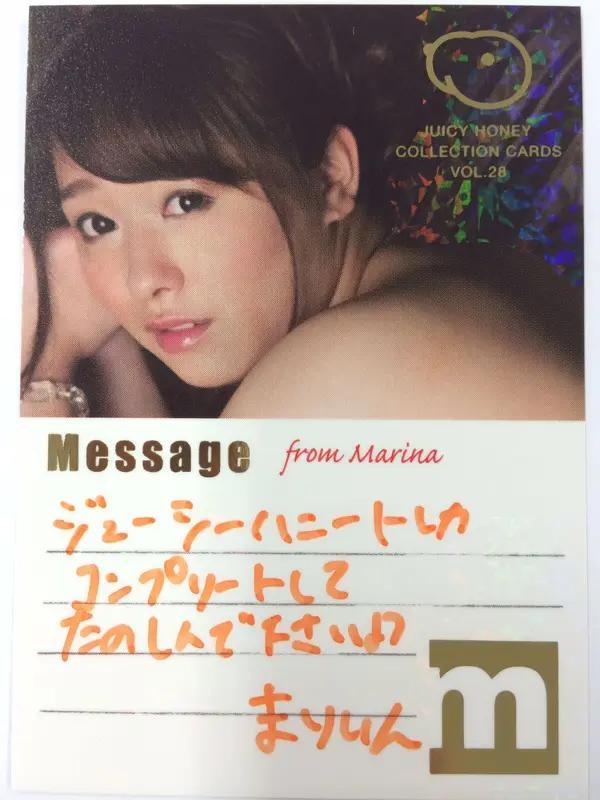 JUICY HONEY
COLLECTION CARDS
VOL.28
Message from Marina
ジューシーハニートレカ
コンプリートして
たのしんで下さいね♡
まりりん
m